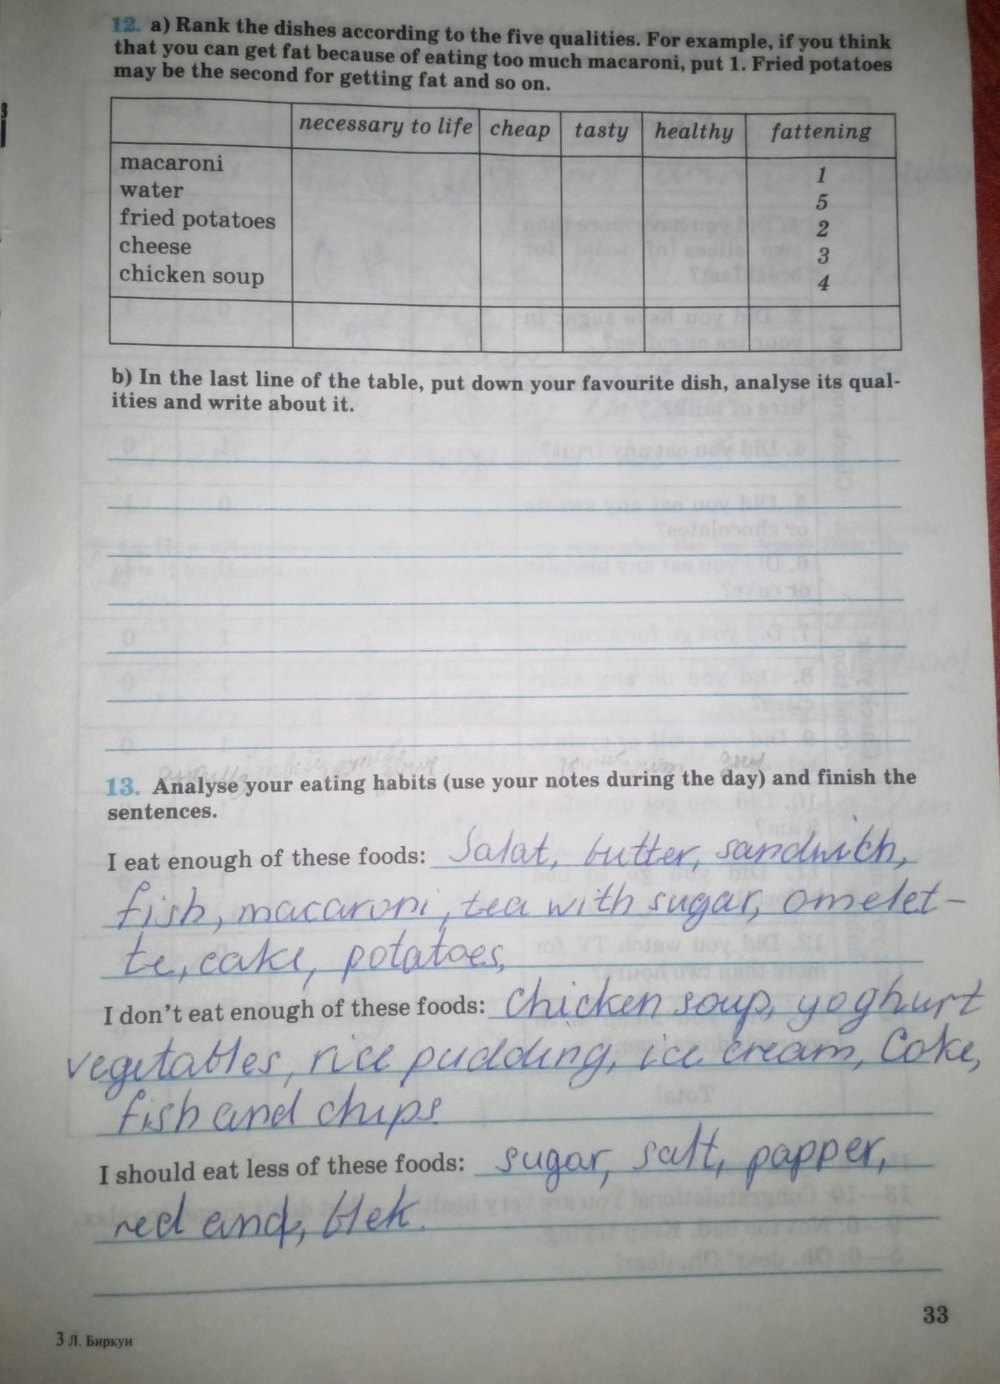 12. a) Rank the dishes according to the five qualities. For example, if you think
that you can get fat because of eating too much macaroni, put 1. Fried potatoes
may be the second for getting fat and so on.
necessary to life cheap tasty healthy fattening
macaroni 1
water 5
fried potatoes 2
cheese 3
chicken soup 4
b) In the last line of the table, put down your favourite dish, analyse its qual-
ities and write about it.
13. Analyse your eating habits (use your notes during the day) and finish the
sentences.
I eat enough of these foods: Salat, butter, sandwich,
fish, macaroni, tea with sugar, omelet-
te, cake, potatoes,
I don't eat enough of these foods: Chicken soup, yoghurt
vegetables, rice pudding, ice cream, Coke,
fish and chips
I should eat less of these foods: sugar, salt, papper,
red and, blek.
33
3 Л. Биркун